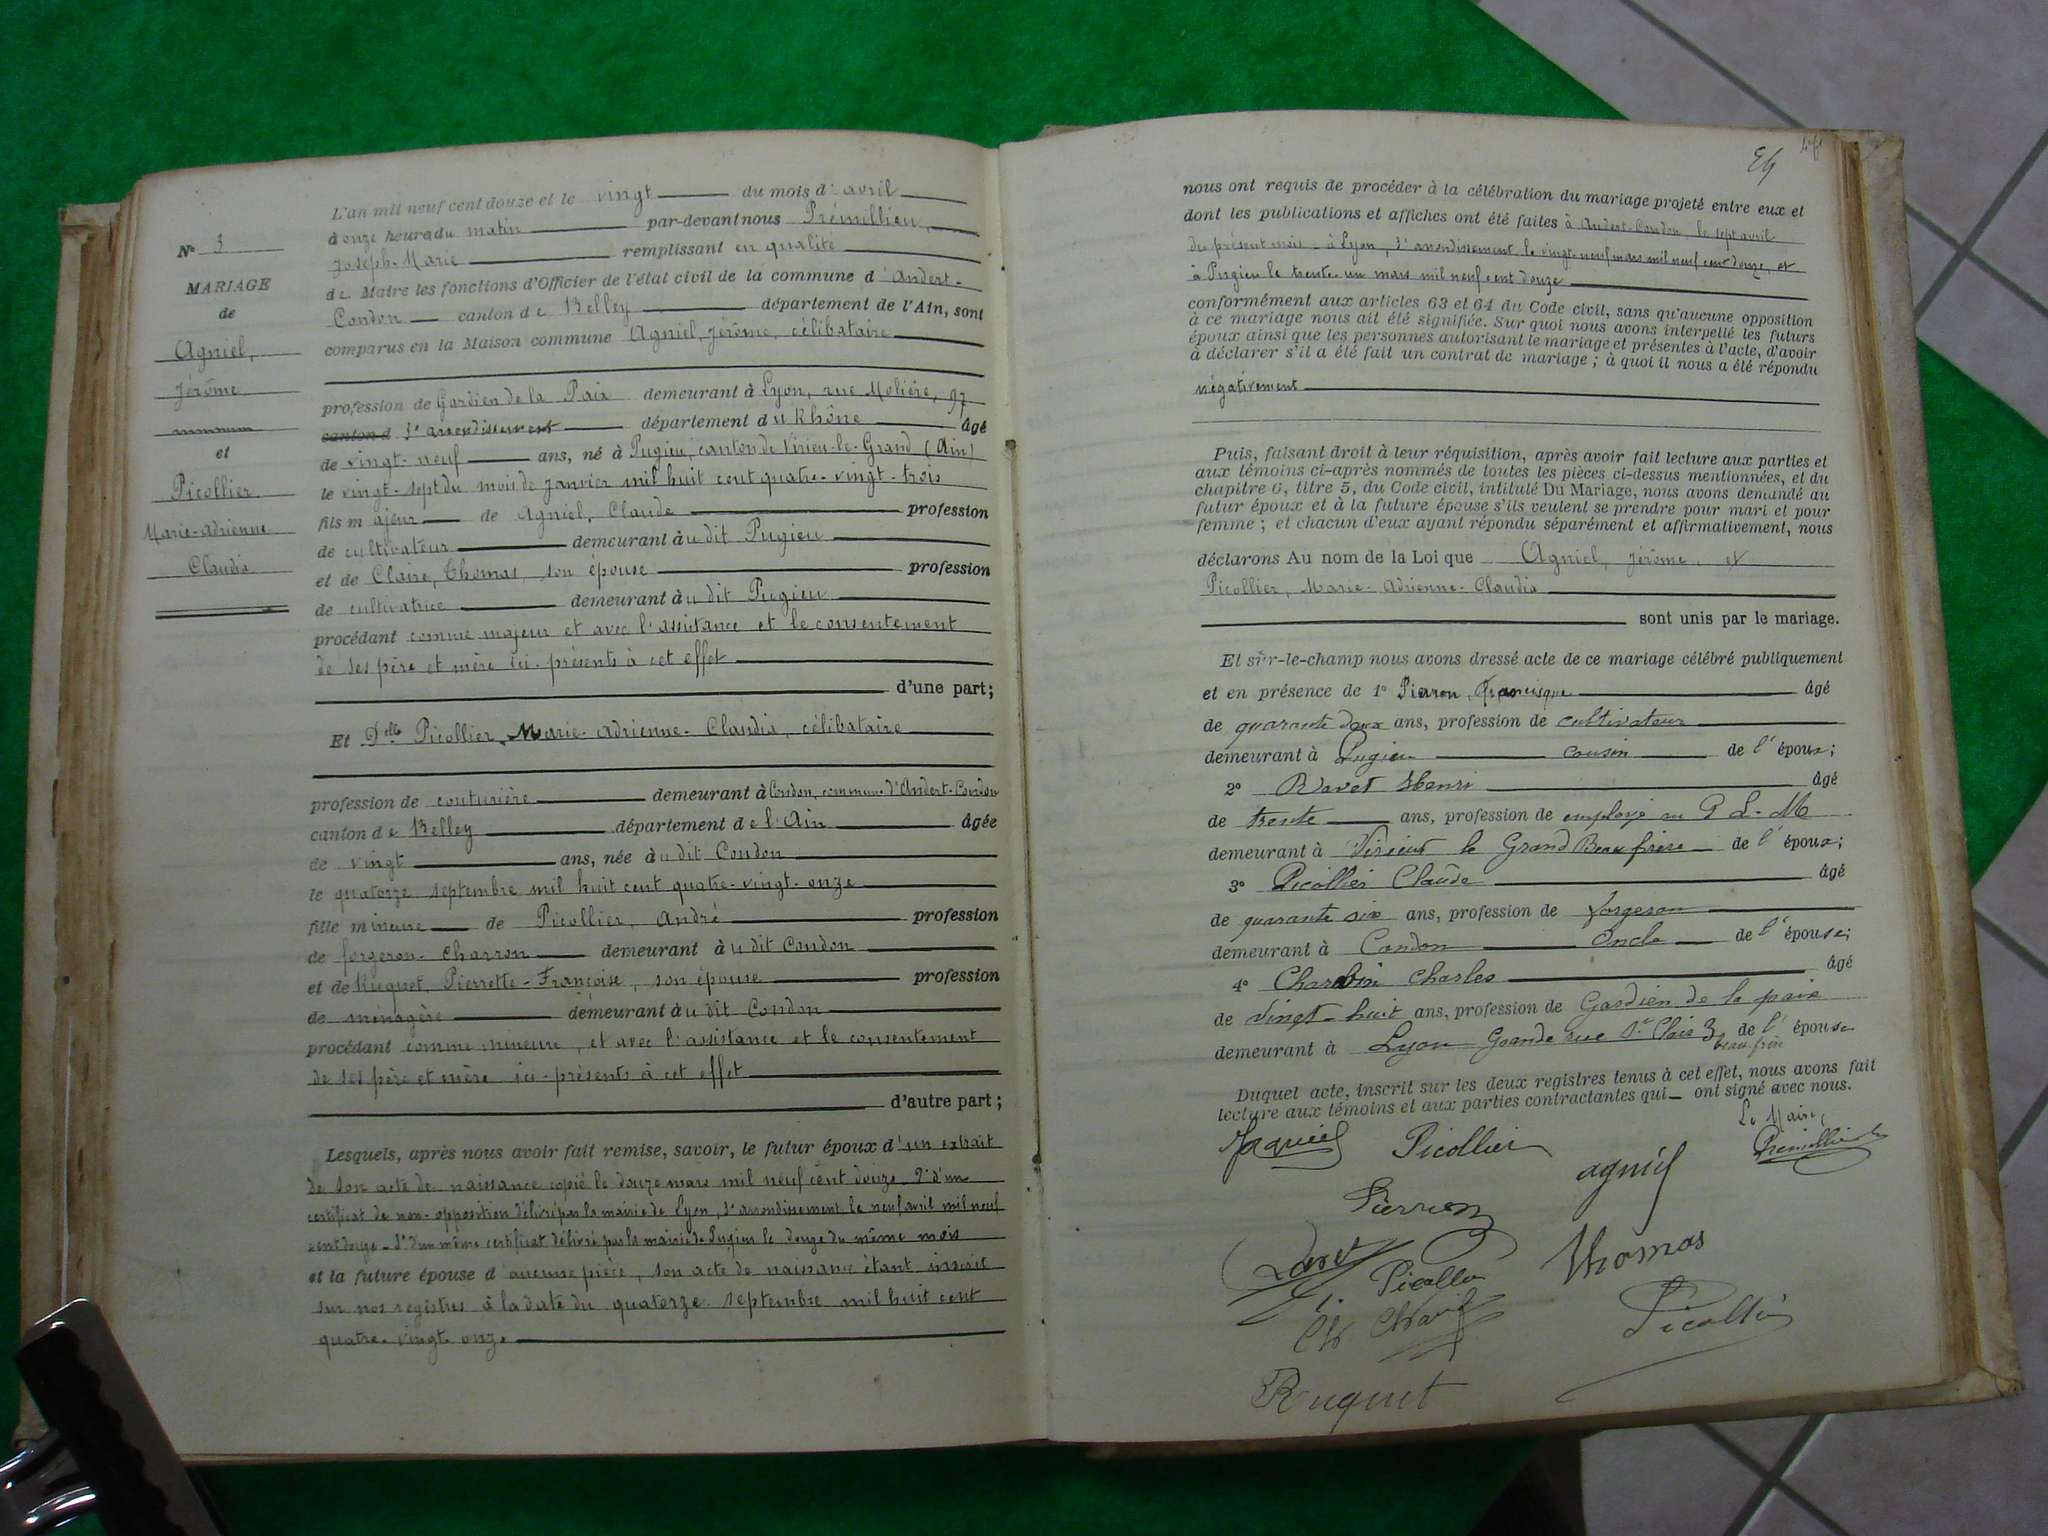 N° 3
MARIAGE
de
Agniel,
Jérôme
et
Picollier
Marie-Adrienne
Claudia
L'an mil neuf cent douze et le vingt du mois d'avril
à onze heures du matin par-devant nous Prémillieu,
Joseph-Marie remplissant en qualité
de Maire les fonctions d'Officier de l'état civil de la commune d'Andert-
Condon canton de Belley département de l'Ain, sont
comparus en la Maison commune Agniel, Jérôme, célibataire
profession de Gardien de la Paix demeurant à Lyon, rue Molière, 97
canton d 3e arrondissement département du Rhône âgé
de vingt-neuf ans, né à Pugieu, canton de Virieu-le-Grand (Ain)
le vingt-sept du mois de Janvier mil huit cent quatre-vingt-trois
fils majeur de Agniel, Claude profession
de cultivateur demeurant àu dit Pugieu
et de Claire, Thomas, son épouse profession
de cultivatrice demeurant àu dit Pugieu
procédant comme majeur et avec l'assistance et le consentement
de ses père et mère ici-présents à cet effet
d'une part;
Et Dlle Picollier, Marie-Adrienne-Claudia, célibataire
profession de couturière demeurant à Condon, commune d'Andert-Condon
canton de Belley département de l'Ain âgée
de vingt ans, née àu dit Condon
le quatorze septembre mil huit cent quatre-vingt-onze
fille mineure de Picollier, André profession
de forgeron-charron demeurant àu dit Condon
et de Ruquet, Pierrette-Françoise, son épouse profession
de ménagère demeurant àu dit Condon
procédant comme mineure, et avec l'assistance et le consentement
de ses père et mère ici-présents à cet effet
d'autre part;
Lesquels, après nous avoir fait remise, savoir, le futur époux d'un extrait
de son acte de naissance copié le douze mars mil neuf cent douze 2° d'un
certificat de non-opposition délivré par la mairie de Lyon, 3e arrondissement le neuf avril mil neuf
cent douze - 3° d'un même certificat délivré par la mairie de Pugieu le douze du même mois
et la future épouse d'aucune pièce, son acte de naissance étant inscrit
sur nos registres à la date du quatorze septembre mil huit cent
quatre-vingt-onze
nous ont requis de procéder à la célébration du mariage projeté entre eux et
dont les publications et affiches ont été faites à Andert-Condon le sept avril
du présent mois - à Lyon, 3e arrondissement le vingt-neuf mars mil neuf cent douze, et
à Pugieu le trente-un mars mil neuf cent douze
conformément aux articles 63 et 64 du Code civil, sans qu'aucune opposition
à ce mariage nous ait été signifiée. Sur quoi nous avons interpellé les futurs
époux ainsi que les personnes autorisant le mariage et présentes à l'acte, d'avoir
à déclarer s'il a été fait un contrat de mariage; à quoi il nous a été répondu
négativement
Puis, faisant droit à leur réquisition, après avoir fait lecture aux parties et
aux témoins ci-après nommés de toutes les pièces ci-dessus mentionnées, et du
chapitre 6, titre 5, du Code civil, intitulé Du Mariage, nous avons demandé au
futur époux et à la future épouse s'ils veulent se prendre pour mari et pour
femme; et chacun d'eux ayant répondu séparément et affirmativement, nous
déclarons Au nom de la Loi que Agniel, Jérôme, et
Picollier, Marie-Adrienne-Claudia
sont unis par le mariage.
Et sur-le-champ nous avons dressé acte de ce mariage célébré publiquement
et en présence de 1° Pierron, Francisque âgé
de quarante deux ans, profession de cultivateur
demeurant à Pugieu cousin de l'époux;
2° Henri âgé
de trente ans, profession de employé au P.L.M
demeurant à Virieu le Grand Beau frère de l'époux;
3° Picollier Claude âgé
de quarante six ans, profession de forgeron
demeurant à Condon Oncle de l'épouse;
4° Charles âgé
de Vingt-huit ans, profession de Gardien de la paix
demeurant à Lyon Grande rue St Clair 3 beau-frère de l'épouse
Duquel acte, inscrit sur les deux registres tenus à cet effet, nous avons fait
lecture aux témoins et aux parties contractantes qui ont signé avec nous.
Le Maire,
Agniel Picollier agniel Prémillieu
Pierron
Thomas
Picollier
Picollier
Ruquet